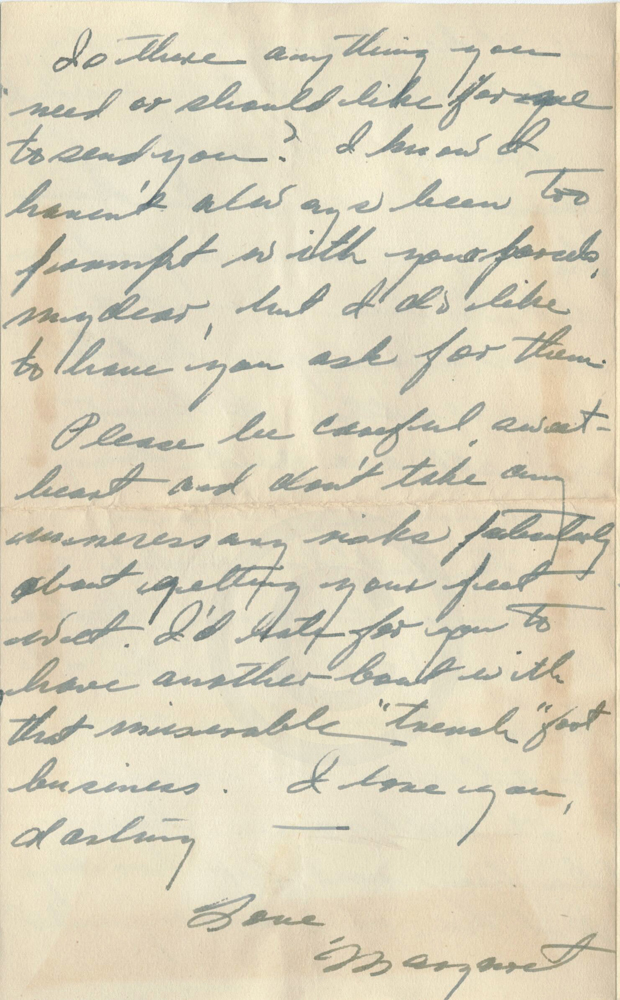 Is there anything you
need or should like for me
to send you? I know I
haven't always been too
prompt with your parcels,
my dear, but I do like
to have you ask for them.
Please be careful, sweet-
heart and don't take any
unnecessary risks particularly
about getting your feet
wet. I'd hate for you to
have another bout with
that miserable "trench" foot
business. I love you,
darling —
Love
Margaret